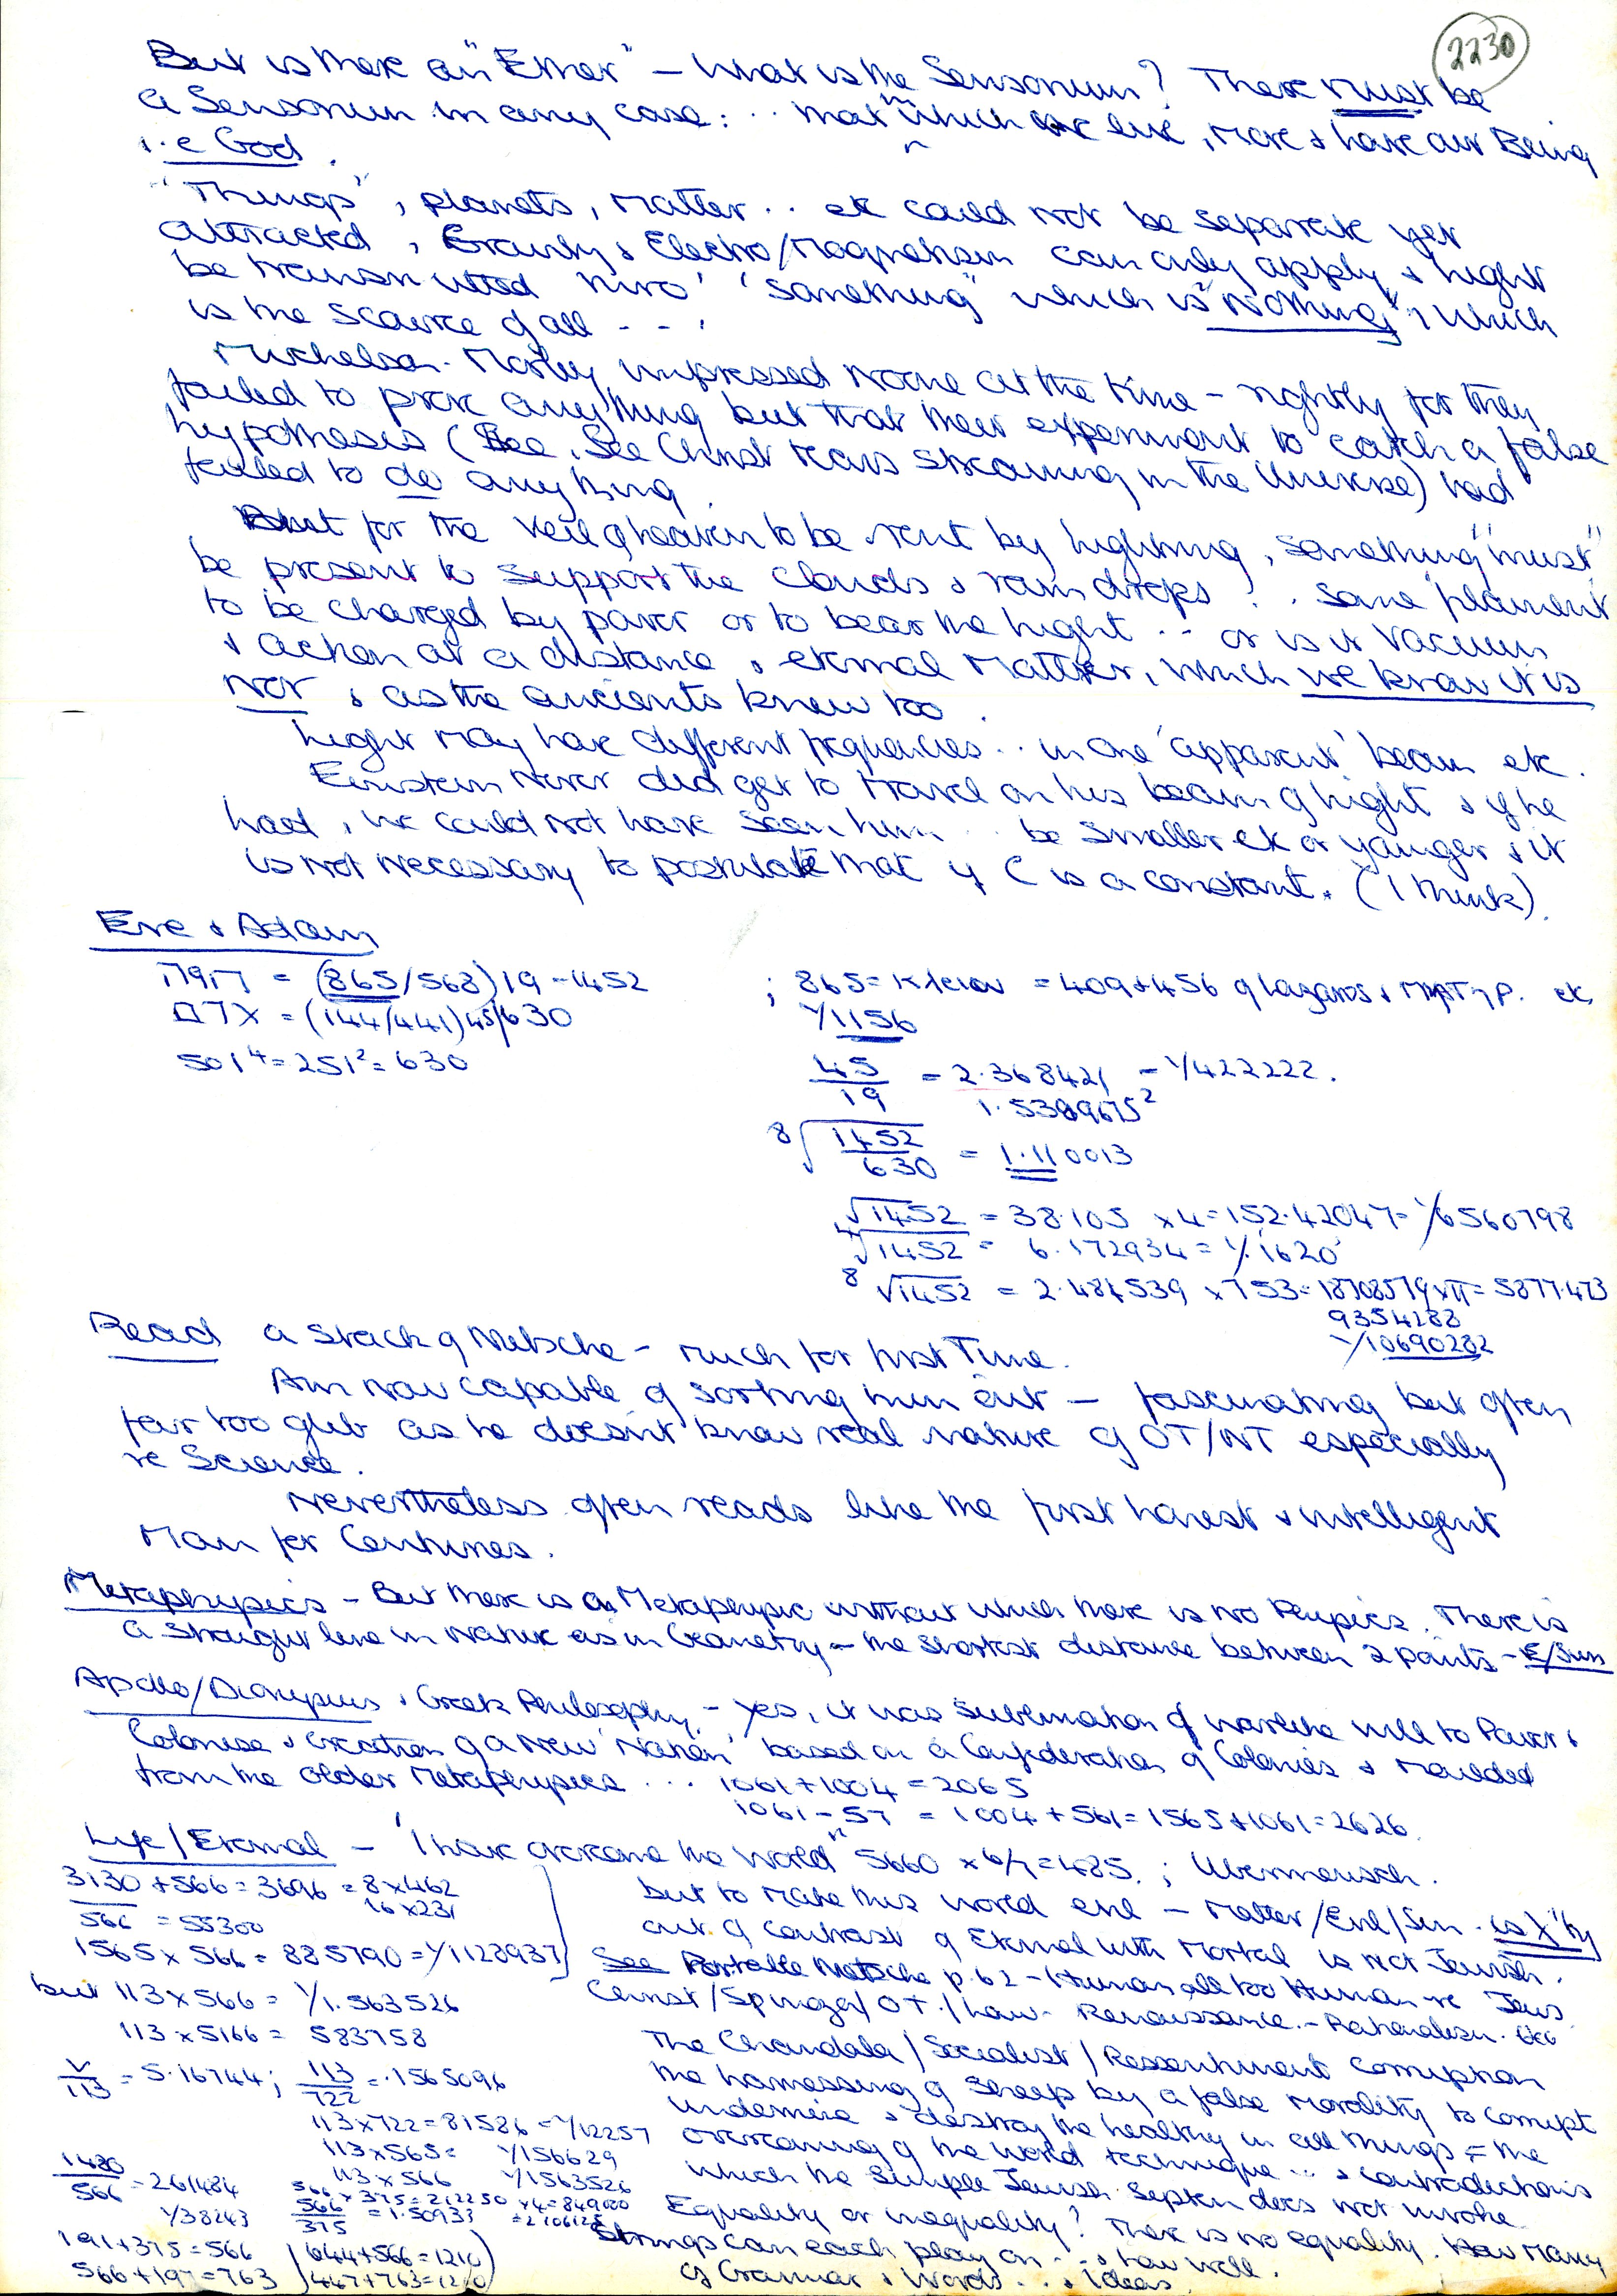 2230
But is there an "Ether" – What is the Sensorium? There must be
a Sensorium in any case: .. that in which we live, move & have our Being
i.e God.
"Things", planets, matter .. etc could not be separate yet
attracted, Gravity & Electro/Magnetism can only apply & light
be transmitted thro' 'something' which is "Nothing", which
is the source of all - - .
Michelson-Morley impressed noone at the time – rightly for they
failed to prove anything but that their experiment to catch a false
hypothesis (See, See Christ tears streaming in the Universe) had
failed to do anything.
But for the veil of heaven to be rent by lightning, something "must"
be present to support the clouds & raindrops? .. some 'filament'
to be charged by power or to bear the light .. or is it Vacuum
& action at a distance, & eternal Matter, which we know it is
not, & as the ancients knew too.
Light may have different frequencies .. in one 'apparent' beam etc.
Einstein never did get to travel on his beam of light & if he
had, we could not have seen him .. be smaller etc or younger & it
is not necessary to postulate that if C is a constant. (I think).
Eve & Adam
= (865/568) 19 – 1452 ; 865 = = 409 & 456 of Lazaros & etc.
= (144/441) 45/630 1/1156
501⁴ = 251² = 630
45/19 = 2.368421 – 1/422222.
1.5389675²
8√1452/630 = 1.110013
√1452 = 38.105 x 4 = 152.42047 = 1/6560798
4√1452 = 6.172934 = 1/.1620
8√1452 = 2.484539 x 753 = 18708579 x π = 5877.473
9354288
1/10690282
Read a stack of Nietsche – much for first Time.
Am now capable of sorting him out – fascinating but often
far too glib as he doesn't know real nature of OT/NT especially
re Science.
Nevertheless often reads like the first honest & intelligent
Man for Centuries.
Metaphysics – But there is a Metaphysic without which there is no Physics. There is
a straight line in nature as in Geometry – the shortest distance between 2 points – E/Sun
Apollo/Dionysus & Greek Philosophy – Yes, it was sublimation of warlike will to Power &
Colonise & Creation of a New 'Nation' based on a Confederation of Colonies & moulded
from the older Metaphysics ... 1061 + 1004 = 2065
1061 – 57 = 1004 + 561 = 1565 + 1061 = 2626.
Life/Eternal – 'I have overcome the World" 5660 x 6/7 = 485. ; Ubermensch.
3130 + 566 = 3696 = 8 x 462
16 x 231
566 = 55300
1565 x 566 = 885790 = 1/1128937
but to make this world evil – Matter/Evil/Sin . is
out of contrast of Eternal with Mortal is not Jewish.
but 113 x 566 = 1/1.563526
See Portable Nietsche p.62 – Human all too Human re Jews
Christ/Spinoza/OT./Law – Renaissance. – Rationalism. etc
113 x 5166 = 583758
The Chandala/Socialist/Ressentiment corruption
/113 = 5.16744 ; 113/722 = .1565096
the harnessing of sheep by a false morality to corrupt
undermine & destroy the healthy in all things = the
113 x 722 = 81586 = 1/12257
overcoming of the World technique ... & contradictions
113 x 565 = 1/156629
113 x 566 1/1563526
which the simple Jewish does not invoke
1480/566 = 261484
1/38243
566 x 375 = 212250 x 4 = 849000
566/375 = 1.50933 = 2106125
Equality or inequality? There is no equality. How Many
191 + 375 = 566
566 + 197 = 763
644 + 566 = 1210
447 + 763 = 1210
Strings can each play on ... & how well.
of Grammar & Words ... & Ideas